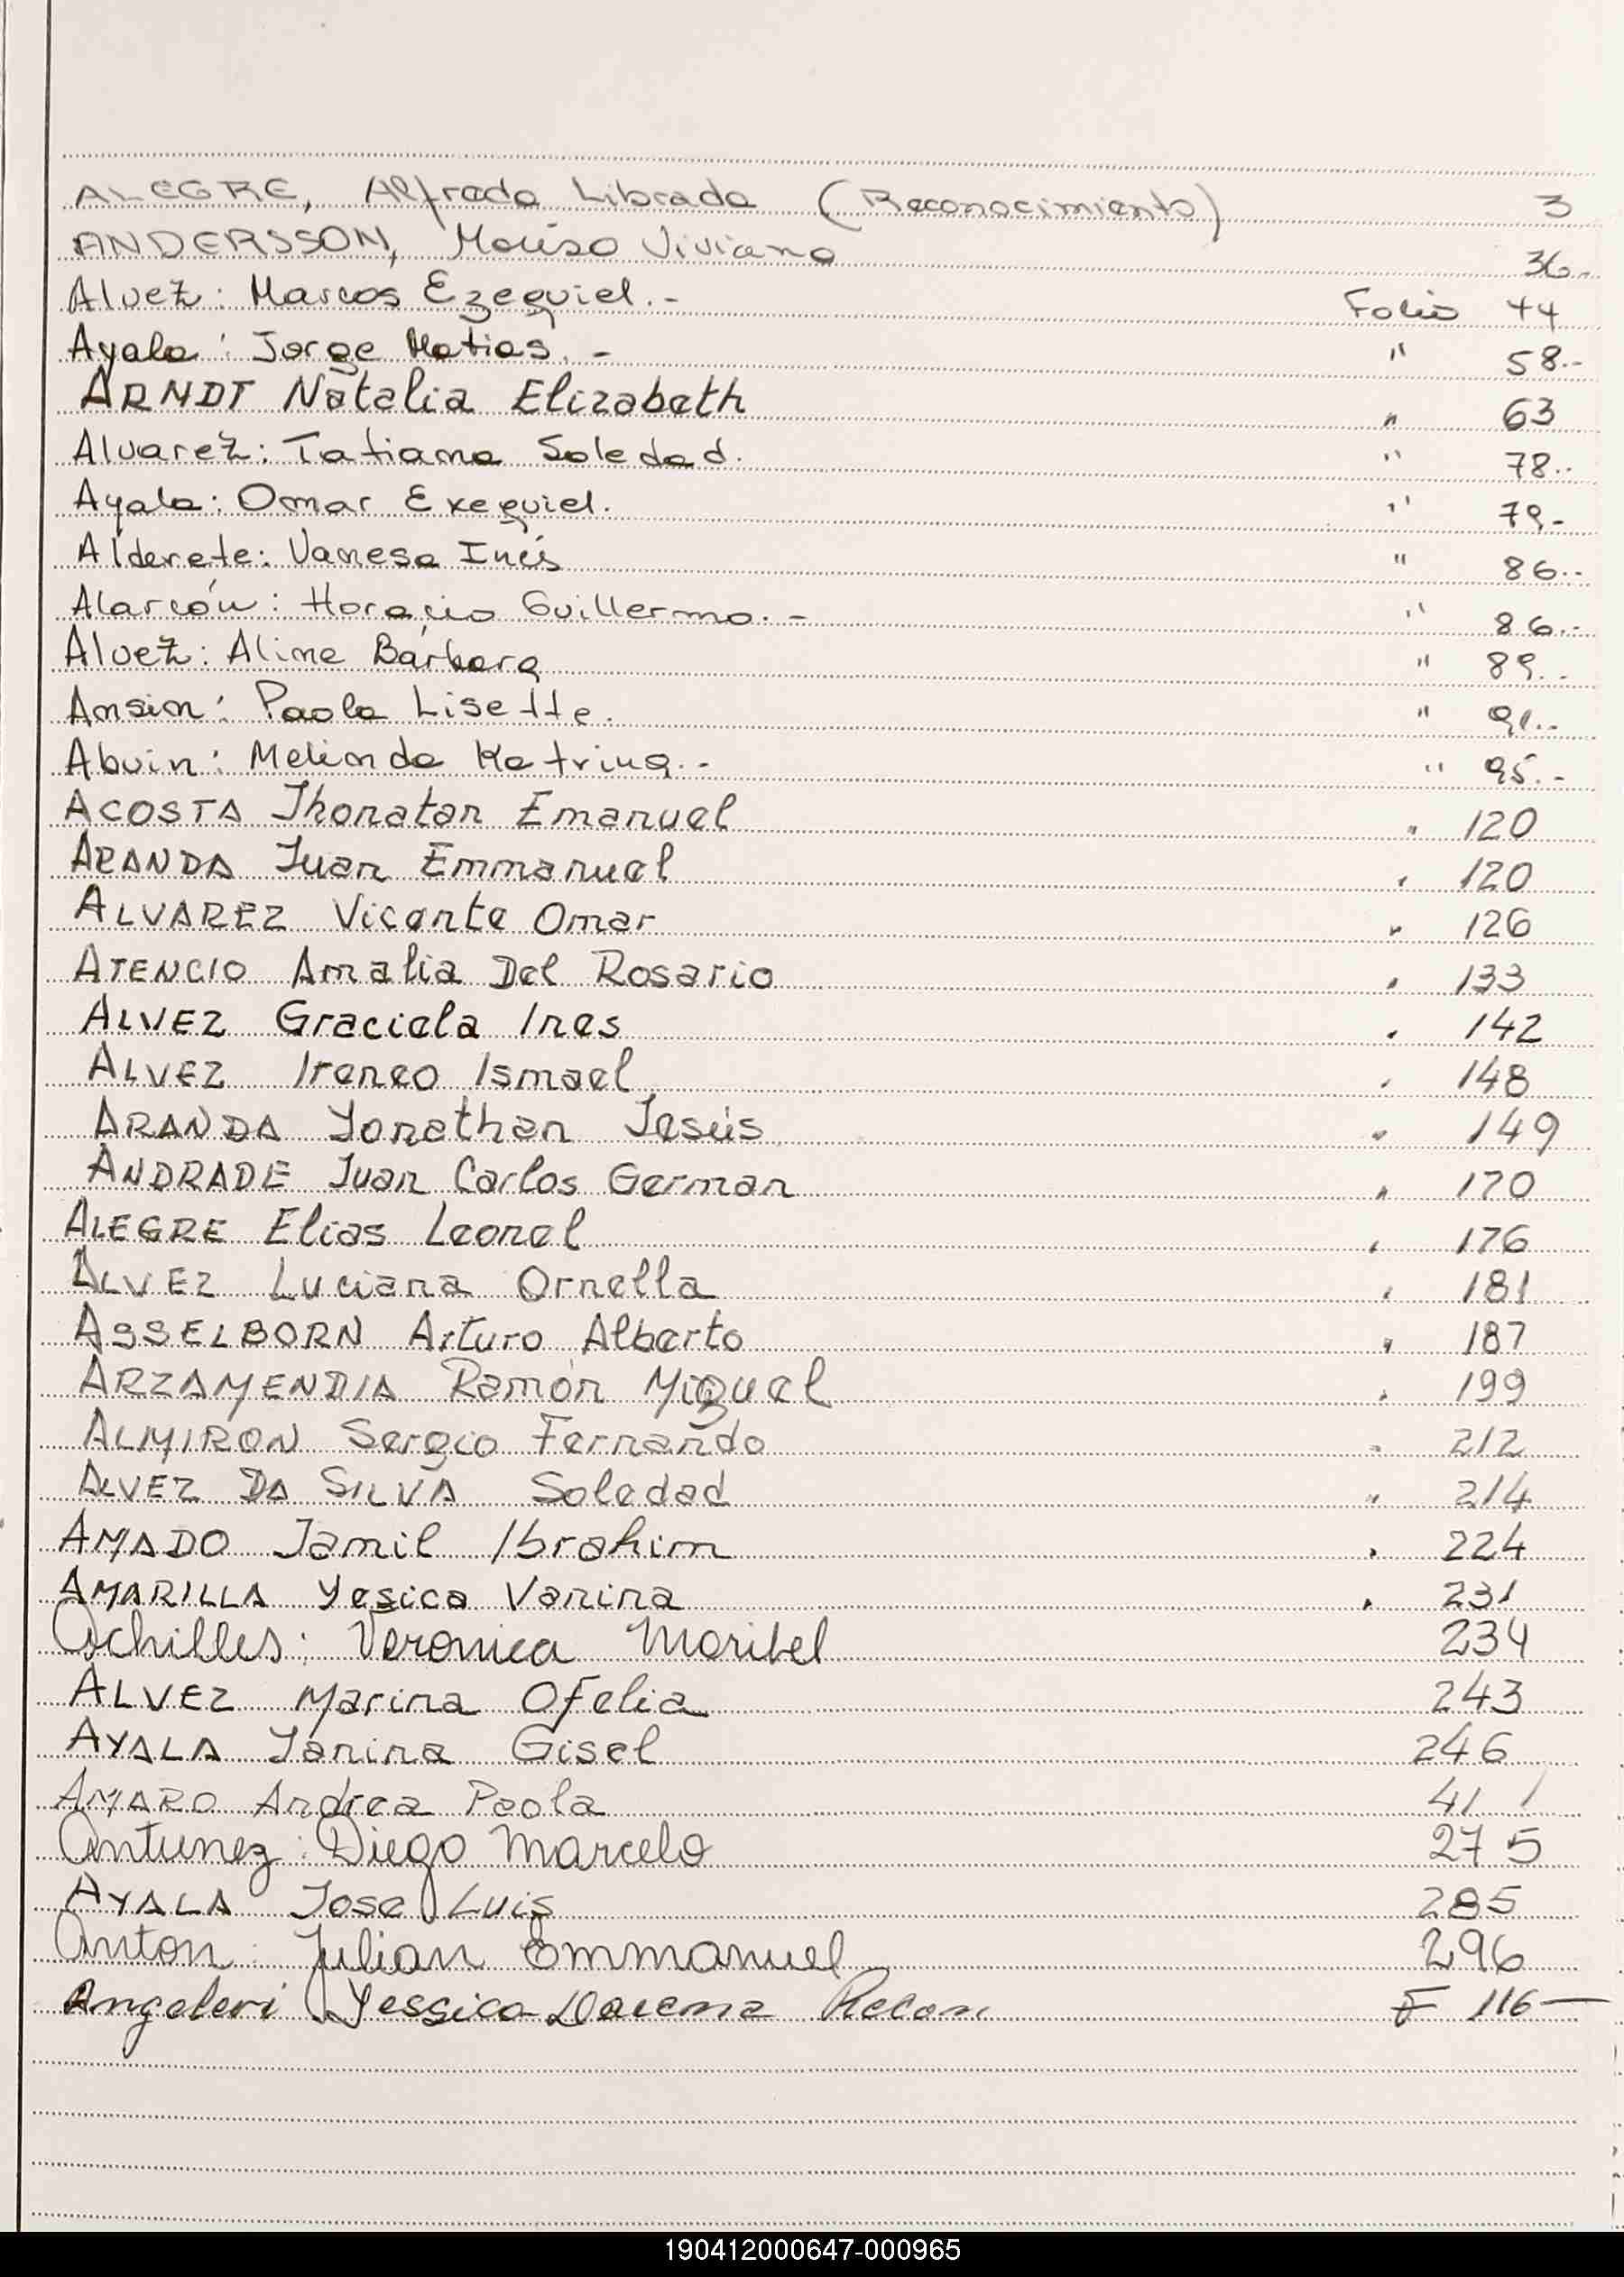 ALEGRE, Alfredo Librado (Reconocimiento) 3
ANDERSSON, Marisa Viviana 36.-
Alvez: Marcos Ezequiel.- Folio 44
Ayala: Jorge Matias.- " 58.-
ARNDT Natalia Elizabeth " 63
Alvarez: Tatiana Soledad. " 78.-
Ayala: Omar Exequiel. " 79.-
Alderete: Vanesa Inés " 86.-
Alarcón: Horacio Guillermo.- " 86.-
Alvez: Aline Bárbara " 89.-
Ansin: Paola Lisette. " 91.-
Abuin: Melinda Katrina.- " 95.-
ACOSTA Jhonatan Emanuel " 120
ARANDA Juan Emmanuel " 120
ALVAREZ Vicente Omar " 126
ATENCIO Amalia Del Rosario " 133
ALVEZ Graciela Ines " 142
ALVEZ Ireneo Ismael " 148
ARANDA Yonathan Jesús " 149
ANDRADE Juan Carlos German " 170
ALEGRE Elias Leonel " 176
ALVEZ Luciana Ornella " 181
ASSELBORN Arturo Alberto " 187
ARZAMENDIA Ramón Miguel " 199
ALMIRON Sergio Fernando " 212
ALVEZ DA SILVA Soledad " 214
AMADO Jamil Ibrahim " 224
AMARILLA Yesica Vanina " 231
Achilles: Veronica Maribel 234
ALVEZ Marina Ofelia 243
AYALA Janina Gisel 246
AMARO Andrea Paola 41
Antunez: Diego Marcelo 275
AYALA Jose Luis 285
Anton: Julian Emmanuel 296
Angeleri Yessica Recon. F 116—
190412000647-000965